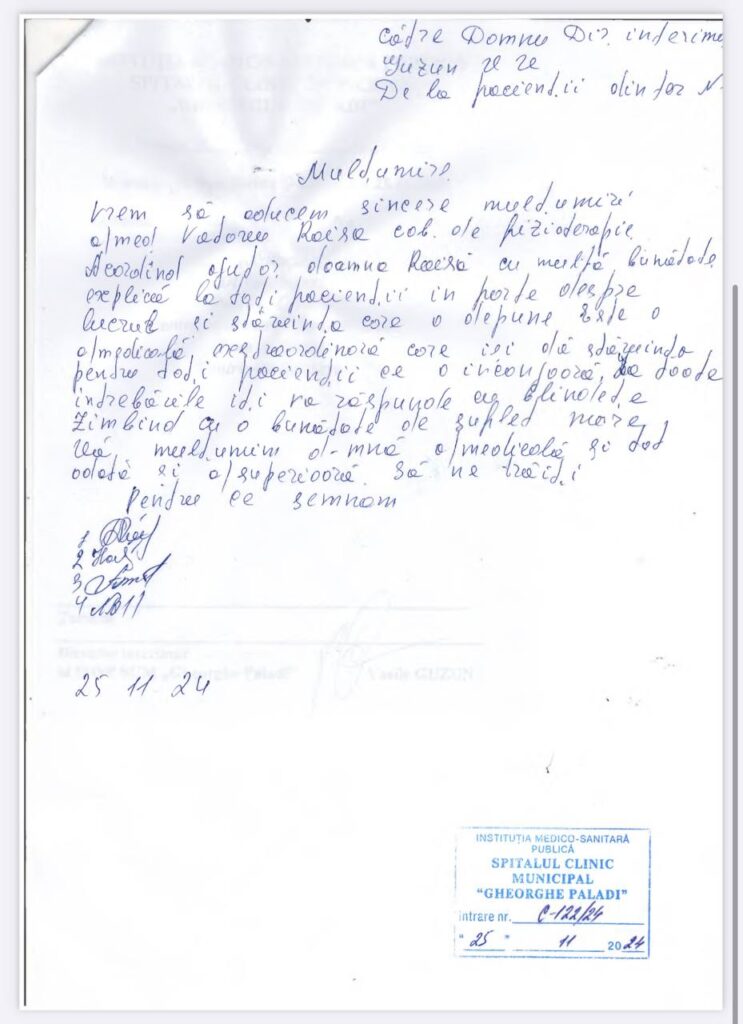 Către Domnu Dir. interima
Guzun
De la pacienții din
Mulțumire
Vrem să aducem sincere mulțumiri
a/med Vadoreu Raisa cab. de fizioterapie
Acordînd ajutor doamna Raisă cu multă bunătate
explică la toți pacienții in parte despre
lucrul și stăruința care o depune Este o
a/medicală extraordinară care iși dă stăruința
pentru toți pacienții ce o inconjoară, la toate
intrebările iți va răspunde cu blîndețe
Zimbind cu o bunătate de suflet mare
Vă mulțumim d-mnă a/medicală și tot
odată și a/superioară. Să ne trăiți
Pentru ce semnăm
1
2
3
4
25 11 24
INSTITUȚIA MEDICO-SANITARĂ
PUBLICĂ
SPITALUL CLINIC
MUNICIPAL
"GHEORGHE PALADI"
intrare nr. C-122/24
"25" 11 2024